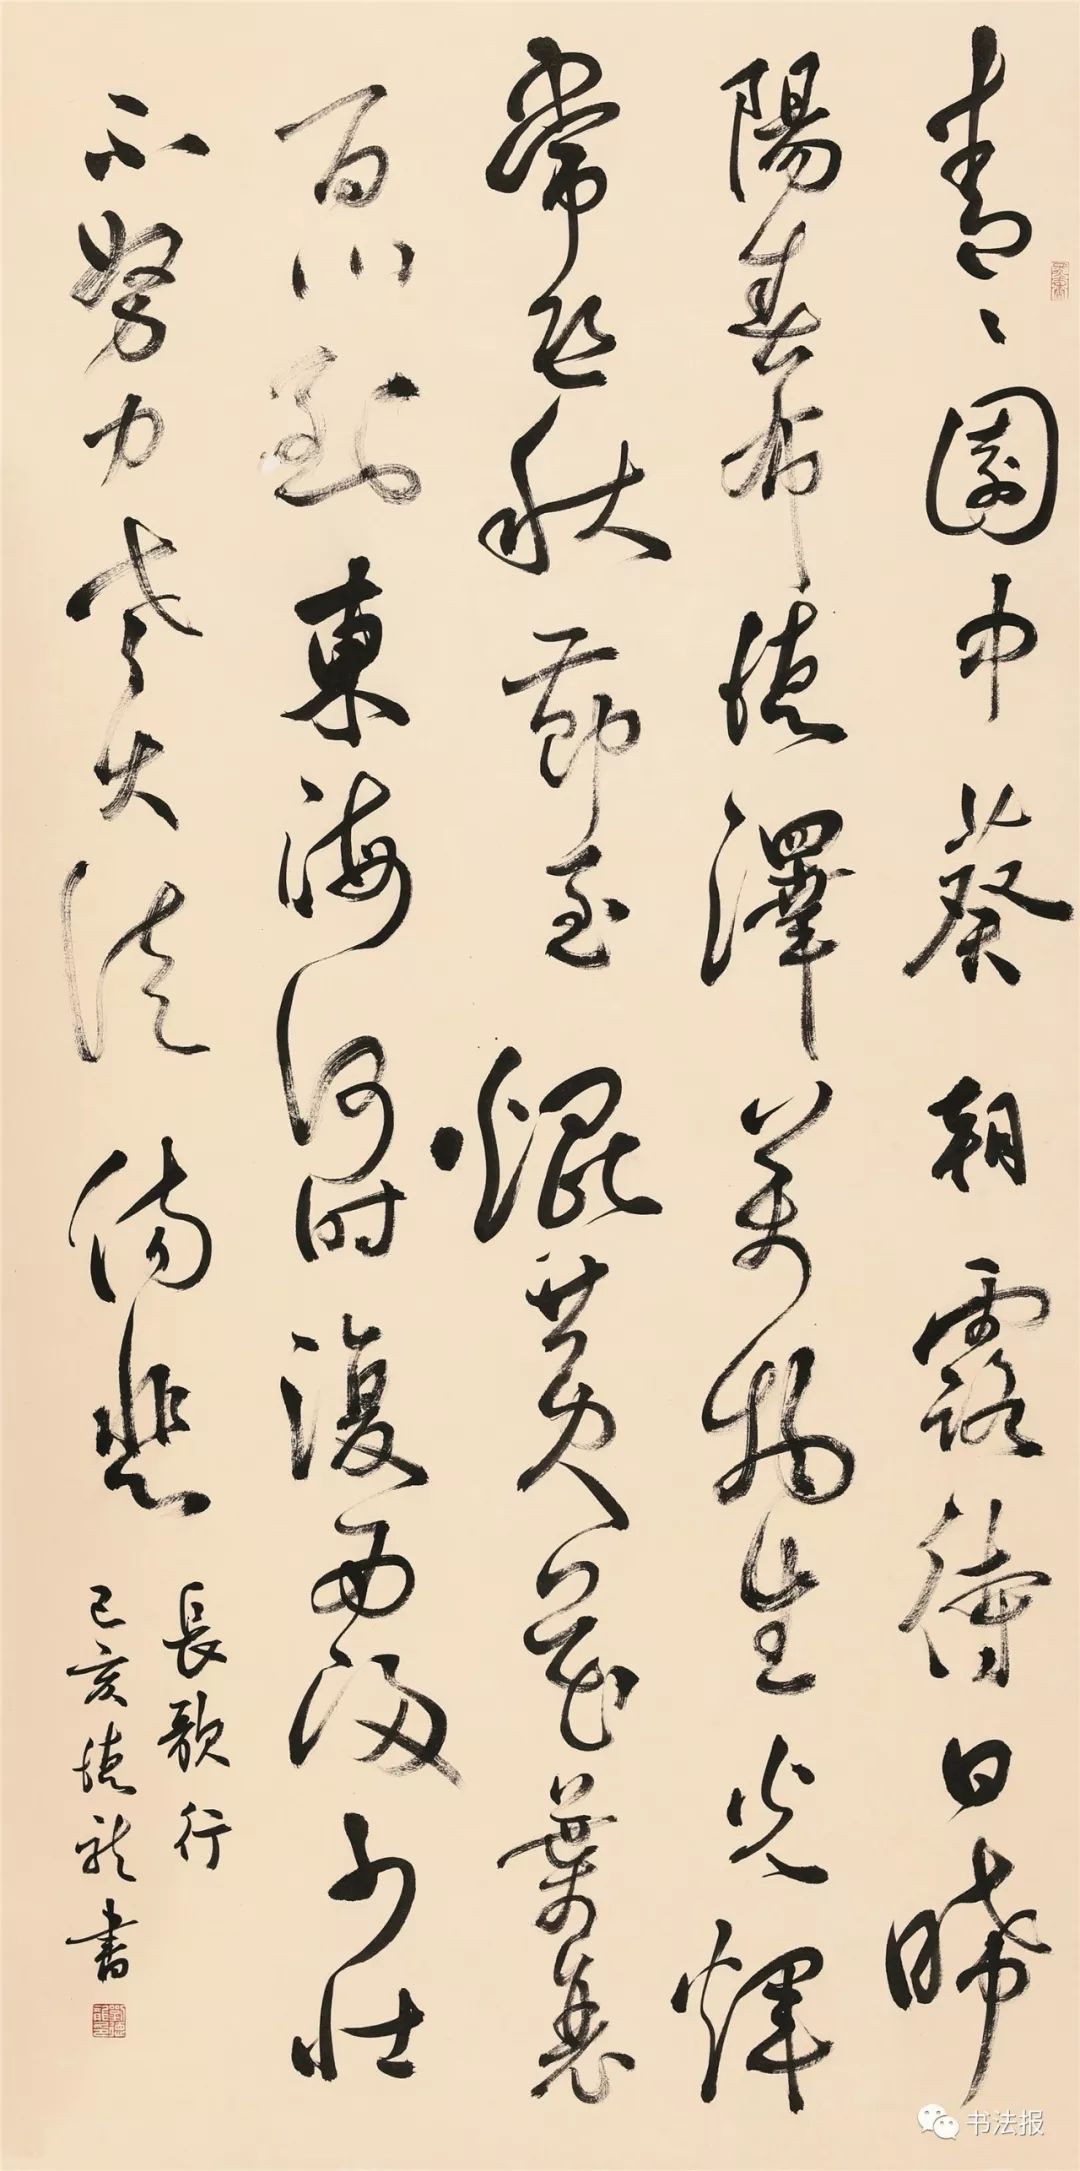 青〻園中葵朝露待日晞
陽春布德澤萬物生光輝
常恐秋節至焜黄花葉衰
百川到東海何时復西歸少壮
不努力老大徒傷悲
長歌行
己亥德龍書
书法报